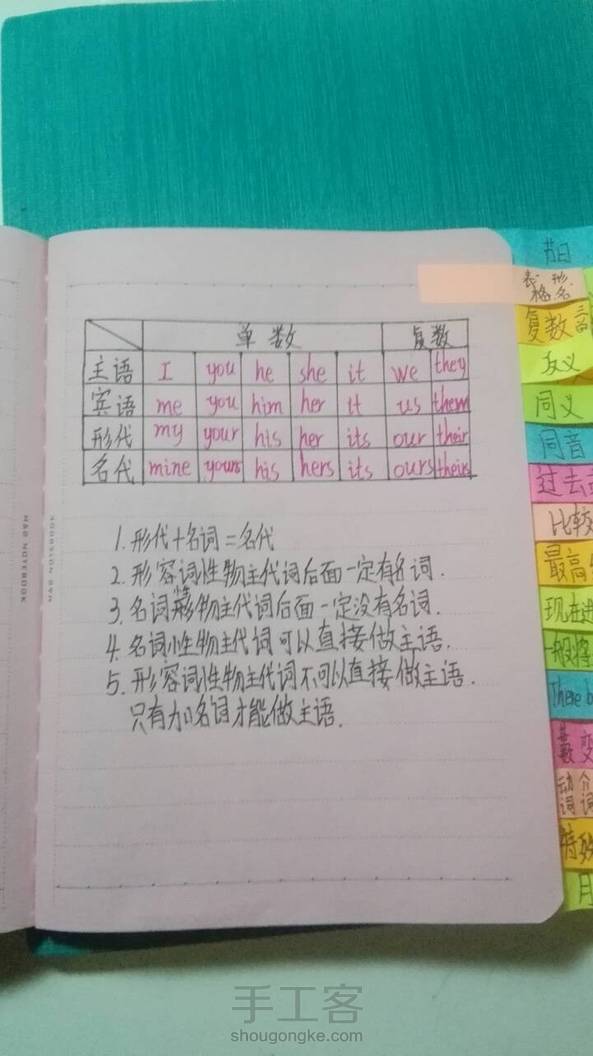 单数 复数
主语 I you he she it we they
宾语 me you him her it us them
形代 my your his her its our their
名代 mine yours his hers its ours theirs
1. 形代+名词=名代
2. 形容词性物主代词后面一定有名词.
3. 名词性物主代词后面一定没有名词.
4. 名词性物主代词可以直接做主语.
5. 形容词性物主代词不可以直接做主语.
只有加名词才能做主语.
节日
表格 形名
复数
反义
同义
同音
过去
比较
最高
现在进
一般将
There b
变
动词 介词
特殊
月
NAD NOTEBOOK
手工客
shougongke.com